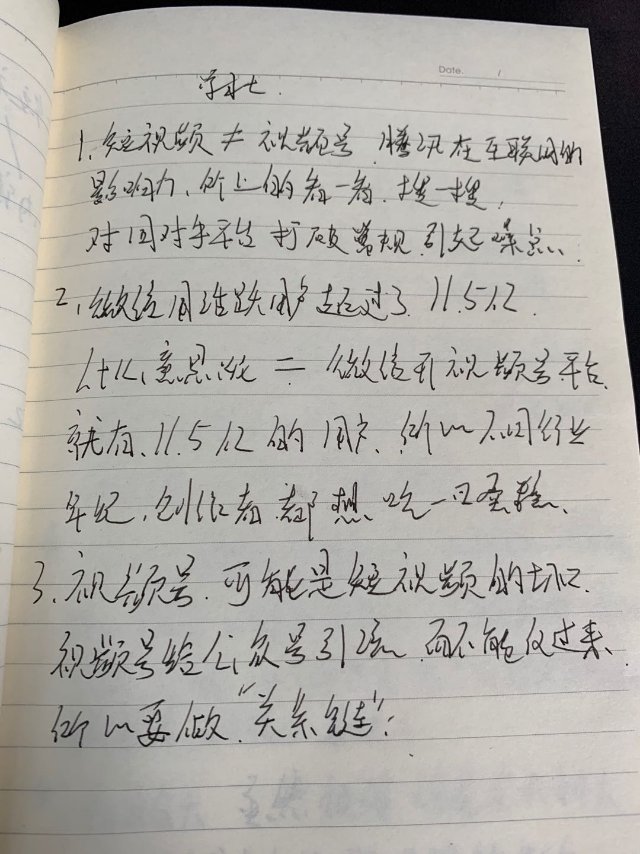 Date. /
1、短视频 ≠ 视频号 腾讯在互联网的
影响力、所上的看一看、搜一搜,
对同对手平台 打破常规 引起噪点.
2、微信月活跃用户超过了 11.5亿
什么意思呢 = 微信开视频号平台
就有、11.5亿 的 用户、所以不同行业
年纪、创作者 都想吃一口蛋糕、
3、视频号、可能是短视频的坏
视频号给公众号引流、而不能仅过来
所以要做 "关系链":